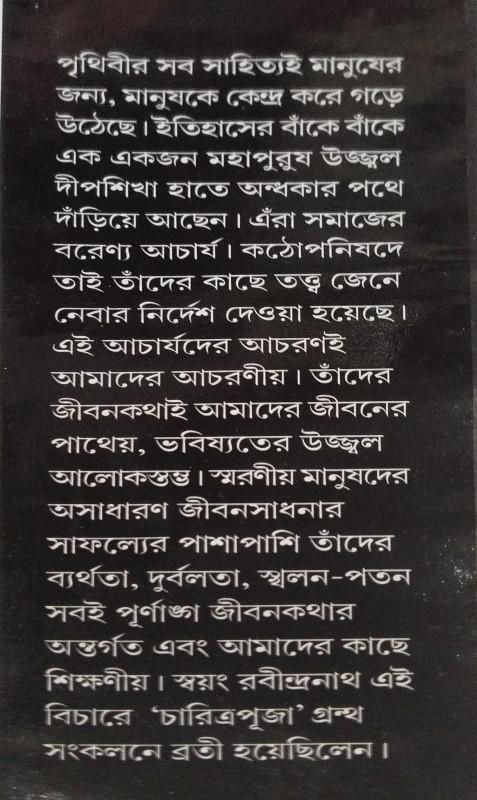 পৃথিবীর সব সাহিত্যই মানুষের
জন্য, মানুষকে কেন্দ্র করে গড়ে
উঠেছে। ইতিহাসের বাঁকে বাঁকে
এক একজন মহাপুরুষ উজ্জ্বল
দীপশিখা হাতে অন্ধকার পথে
দাঁড়িয়ে আছেন। এঁরা সমাজের
বরেণ্য আচার্য। কঠোপনিষদে
তাই তাঁদের কাছে তত্ত্ব জেনে
নেবার নির্দেশ দেওয়া হয়েছে।
এই আচার্যদের আচরণই
আমাদের আচরণীয়। তাঁদের
জীবনকথাই আমাদের জীবনের
পাথেয়, ভবিষ্যতের উজ্জ্বল
আলোকস্তম্ভ। স্মরণীয় মানুষদের
অসাধারণ জীবনসাধনার
সাফল্যের পাশাপাশি তাঁদের
ব্যর্থতা, দুর্বলতা, স্খলন-পতন
সবই পূর্ণাঙ্গ জীবনকথার
অন্তর্গত এবং আমাদের কাছে
শিক্ষণীয়। স্বয়ং রবীন্দ্রনাথ এই
বিচারে ‘চারিত্রপূজা’ গ্রন্থ
সংকলনে ব্রতী হয়েছিলেন।